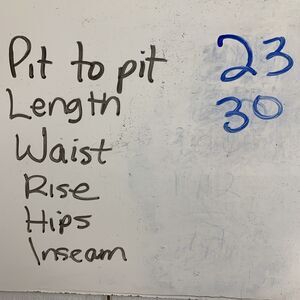 Pit to pit 23
Length 30
Waist
Rise
Hips
Inseam